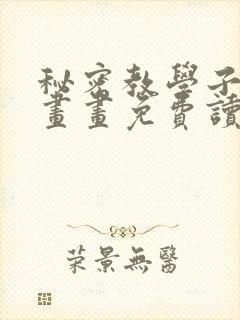 秘密教學子
畫畫免費讀
荣景無醫